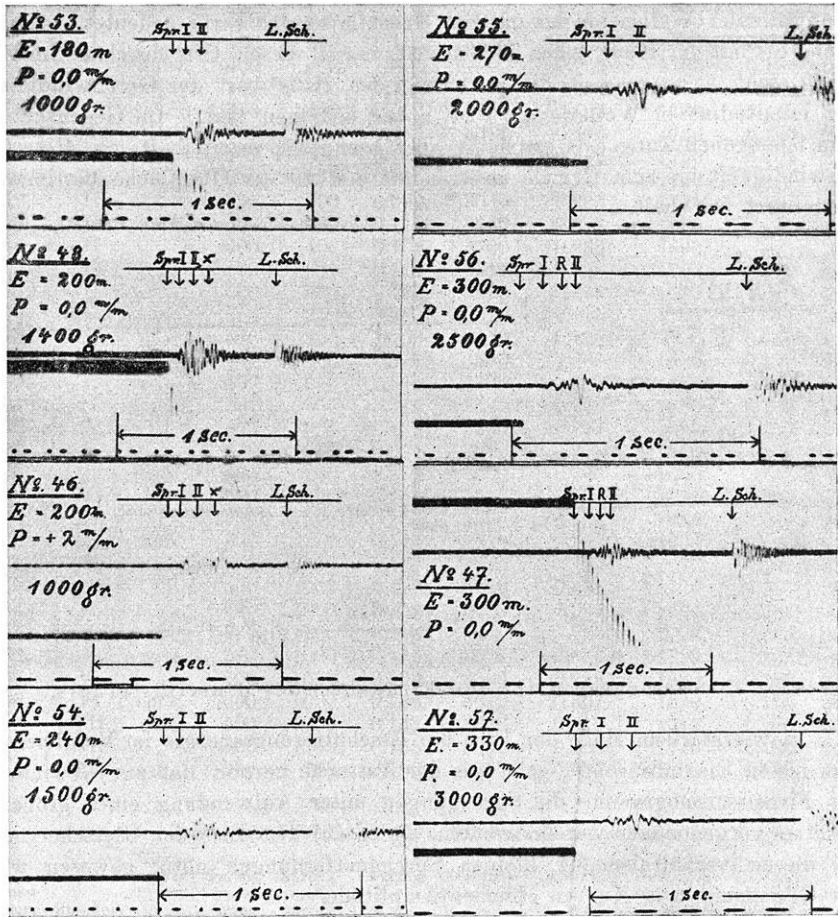 Nº 53.
E = 180 m
P = 0,0 m/m
1000 gr.
Spr. I II L. Sch.
1 sec.
Nº 48.
E = 200 m.
P = 0,0 m/m
1400 gr.
Spr. I II x L. Sch.
1 sec.
Nº 46.
E = 200 m.
P = + 2 m/m
1000 gr.
Spr. I II x L. Sch.
1 sec.
Nº 54.
E = 240 m
P = 0,0 m/m
1500 gr.
Spr. I II L. Sch.
1 sec.
Nº 55.
E = 270 m.
P = 0,0 m/m
2000 gr.
Spr. I II L. Sch.
1 sec.
Nº 56.
E = 300 m.
P = 0,0 m/m
2500 gr.
Spr. I R II L. Sch.
1 sec.
Spr. I R II L. Sch.
Nº 47.
E = 300 m.
P = 0,0 m/m
1 sec.
Nº 57.
E. = 330 m
P. = 0,0 m/m
3000 gr.
Spr. I II L. Sch.
1 sec.